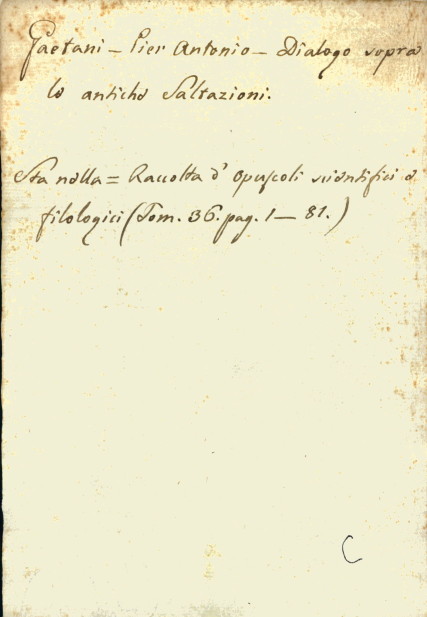 Gaetani - Pier Antonio - Dialogo sopra
le antiche Saltazioni.
Sta nella = Raccolta d' Opuscoli scientifici e
filologici (Tom. 36. pag. 1 - 81.)
C